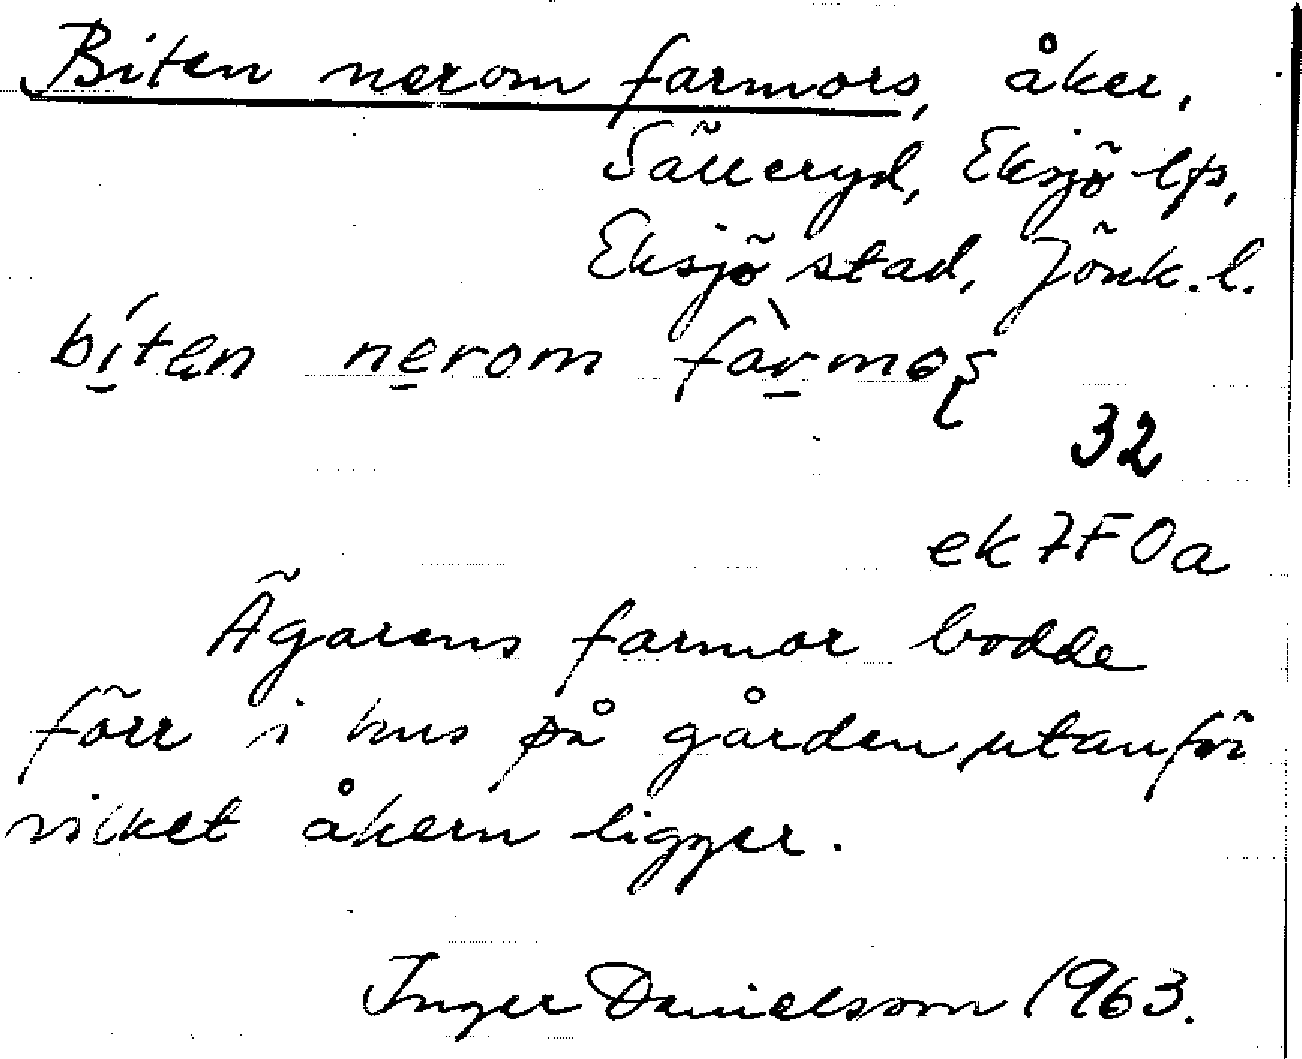 Biten nerom farmors, åker,
Sälleryd, Eksjö lfs,
Eksjö stad, Jönk. l.
bí̲tən ne̲rom fàr̲moʂ
32
ek 7F0a
Ägarens farmor bodde
förr i hus på gården, utanför
vilket åkern ligger.
Inger Danielsson 1963.